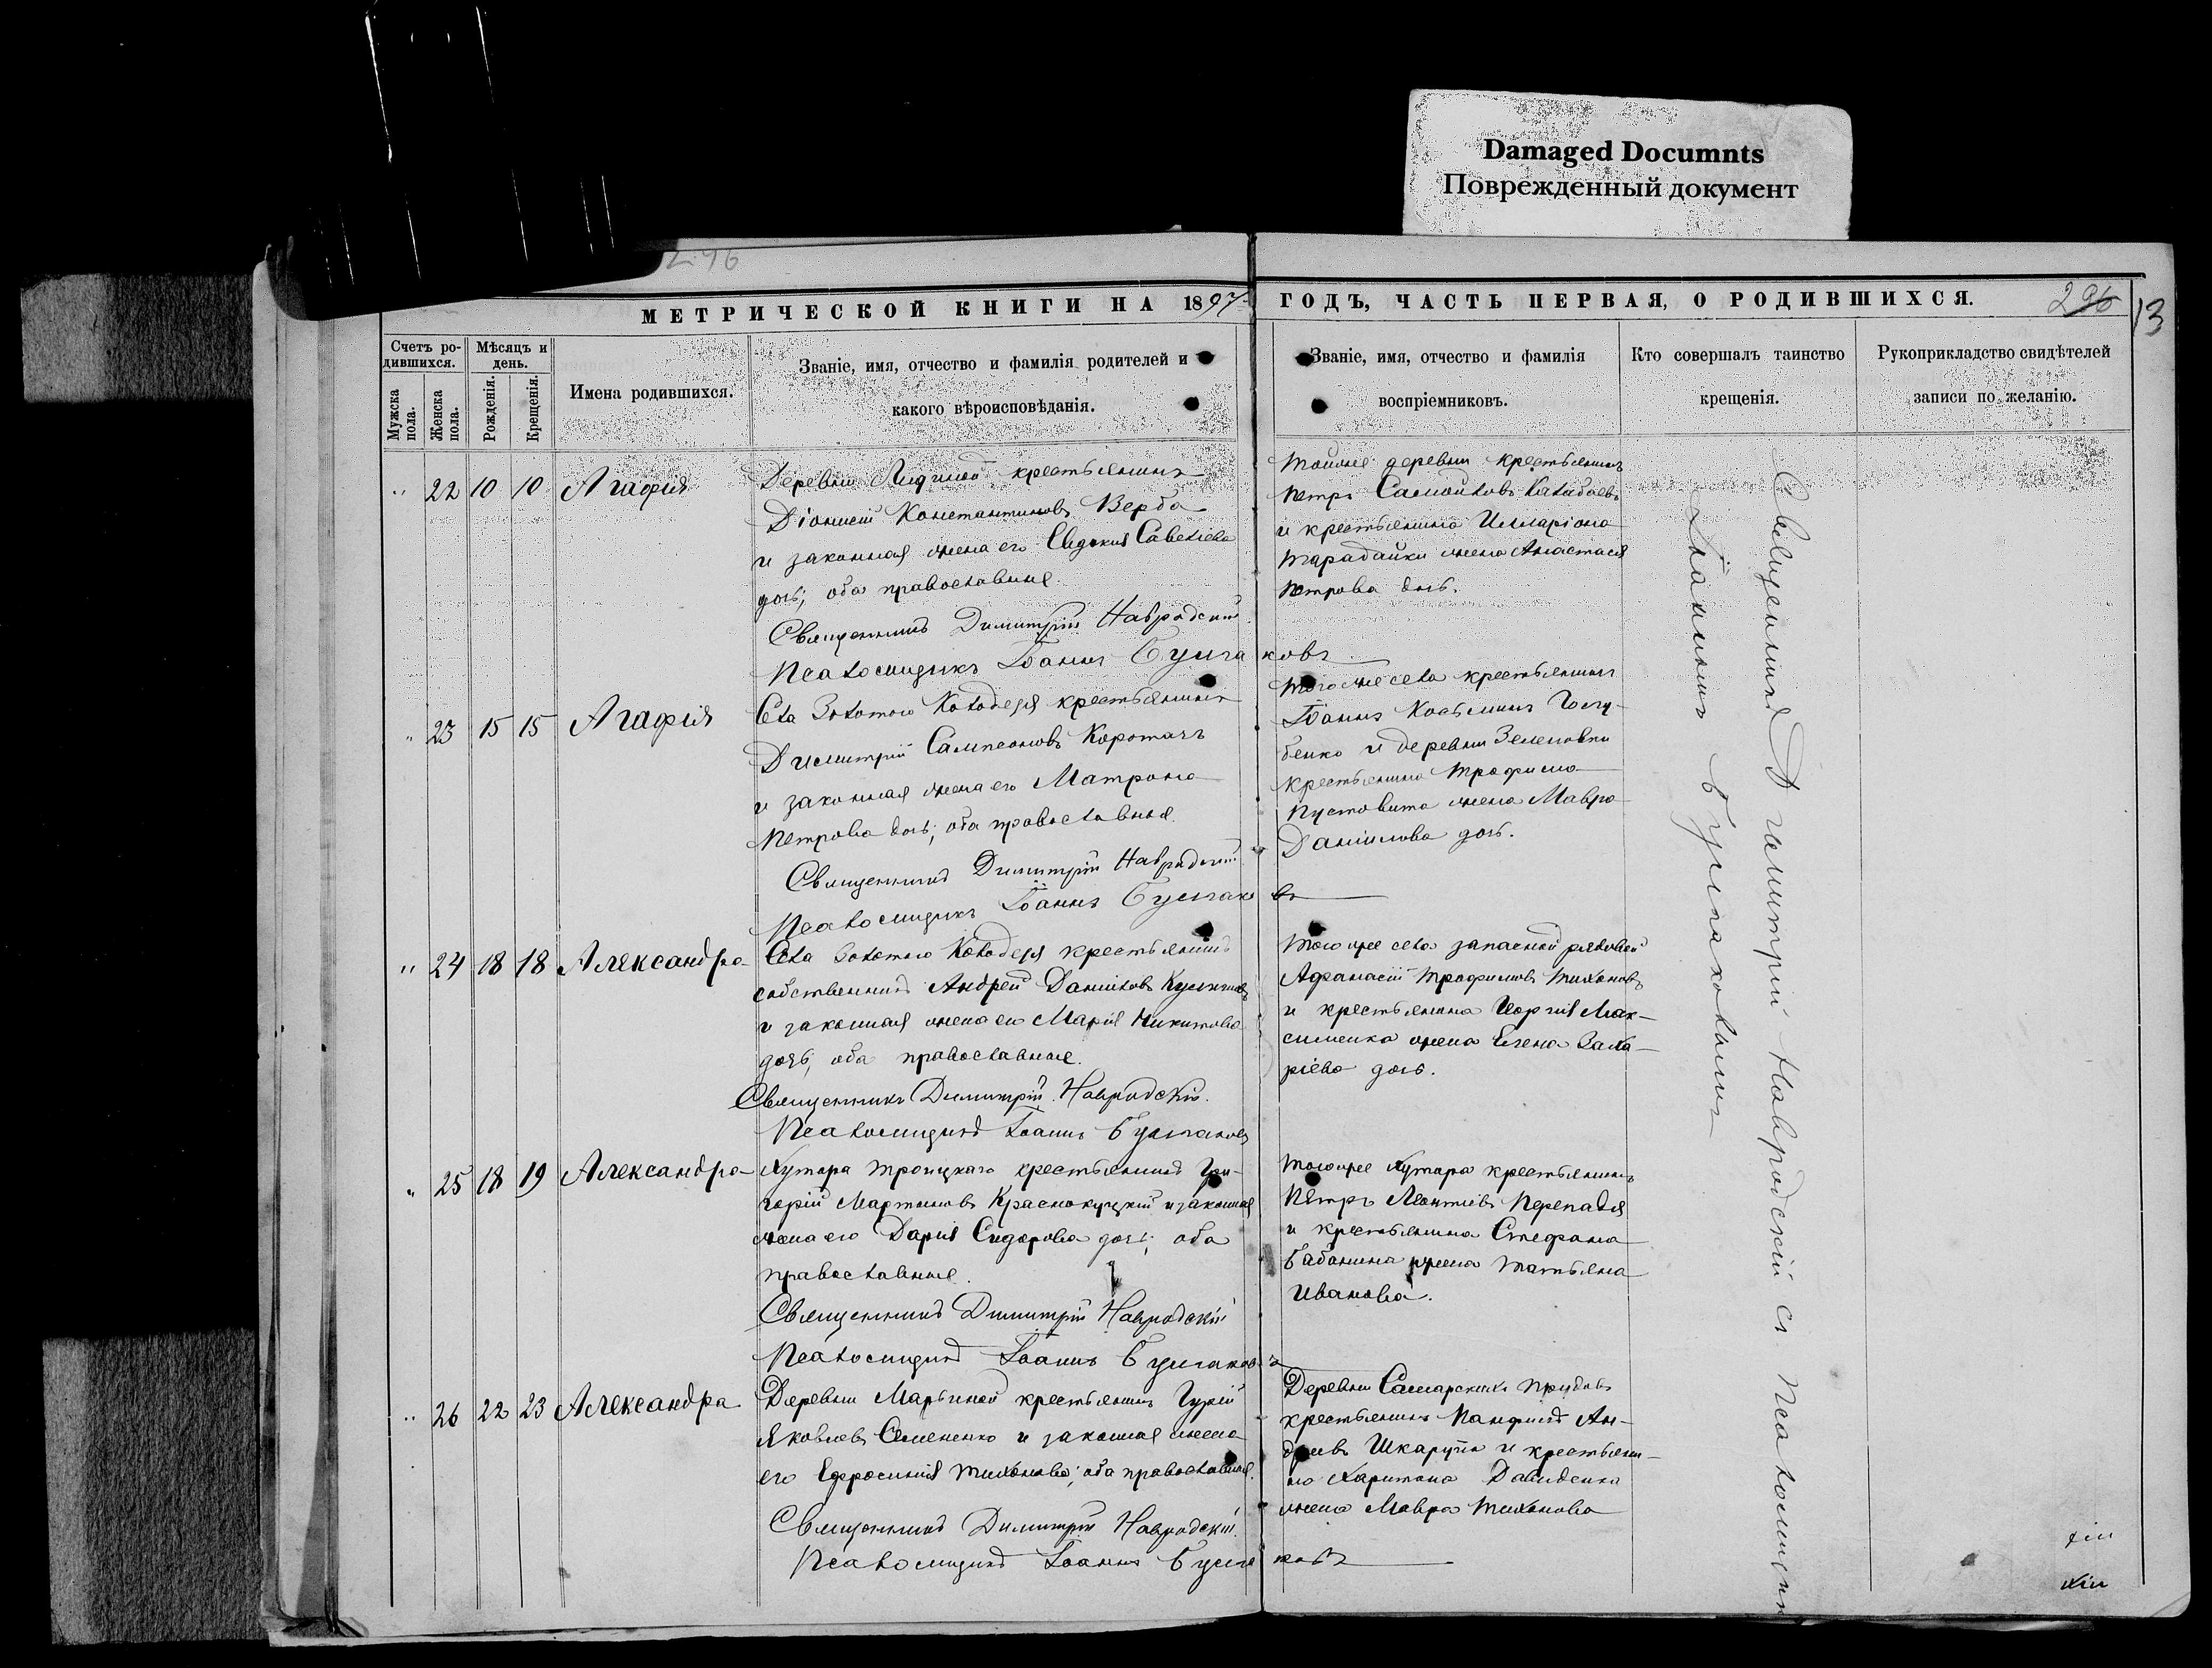 Damaged Documnts
Поврежденный документ
296
МЕТРИЧЕСКОЙ КНИГИ НА 1897 ГОДЪ, ЧАСТЬ ПЕРВАЯ, О РОДИВШИХСЯ.
296 13
Счетъ родившихся.
Мужска пола.
Женска пола.
Мѣсяцъ и день.
Рожденія.
Крещенія.
Имена родившихся.
Званіе, имя, отчество и фамилія родителей и
какого вѣроисповѣданія.
Званіе, имя, отчество и фамилія
воспріемниковъ.
Кто совершалъ таинство
крещенія.
Рукоприкладство свидѣтелей
записи по желанію.
" 22 10 10 Агафія
Деревни крестьянинъ
Діонисій Константиновъ Верба
и законная жена его Евдокия Савелиева
дочь, оба православные.
Священникъ Димитрій Навродскій.
Псаломщикъ Іоаннъ Булгаковъ
тойже деревни крестьянинъ
Петръ Самойловъ
и крестьянина Илларіона
Тарадайки жена Анастасія
Петрова дочь.
" 23 15 15 Агафія
Села Золотого Колодезя крестьянинъ
Димитрій Сампсоновъ Коротачъ
и законная жена его Матрона
Петрова дочь, оба православные.
Священникъ Димитрій Навродскій
Псаломщикъ Іоаннъ Булгаковъ
того же села крестьянинъ
Іоаннъ Косьминъ Голу-
бенко и деревни Зеленовки
крестьянина Трофима
Пустовита жена Мавра
Даніилова дочь.
" 24 18 18 Александра
Села Золотого Колодезя крестьянинъ
собственникъ Андрей Даніиловъ
и законная жена его Марія Никитова
дочь, оба православные.
Священникъ Димитрій Навродскій.
Псаломщикъ Іоаннъ Булгаковъ
того же села запасной рядовой
Афанасій Трофимовъ Тихоновъ
и крестьянина Георгія Мак-
сименка жена Елена Заха-
ріева дочь.
" 25 18 19 Александра
Хутора Троицкаго крестьянинъ Гри-
горій Мартиновъ Краснокуцкій и законная
жена его Дарія Сидорова дочь, оба
православные.
Священникъ Димитрій Навродскій
Псаломщикъ Іоаннъ Булгаковъ
того же хутора крестьянинъ
Петръ Леонтіевъ Перепадя
и крестьянина Стефана
Бабанина жена Татьяна
Иванова.
" 26 22 23 Александра
Деревни Марьиной крестьянинъ Гурій
Яковлевъ Семененко и законная жена
его Ефросинія Тихонова, оба православные.
Священникъ Димитрій Навродскій.
Псаломщикъ Іоаннъ Булгаковъ
Деревни Самарскихъ Прудовъ
крестьянинъ Панфилъ Ан-
дреевъ Шкарупа и крестьяни-
на Харитона Давиденка
жена Мавра Тихонова
Священникъ Димитрій Навродскій съ Псаломщик
Іоанномъ Булгаковымъ